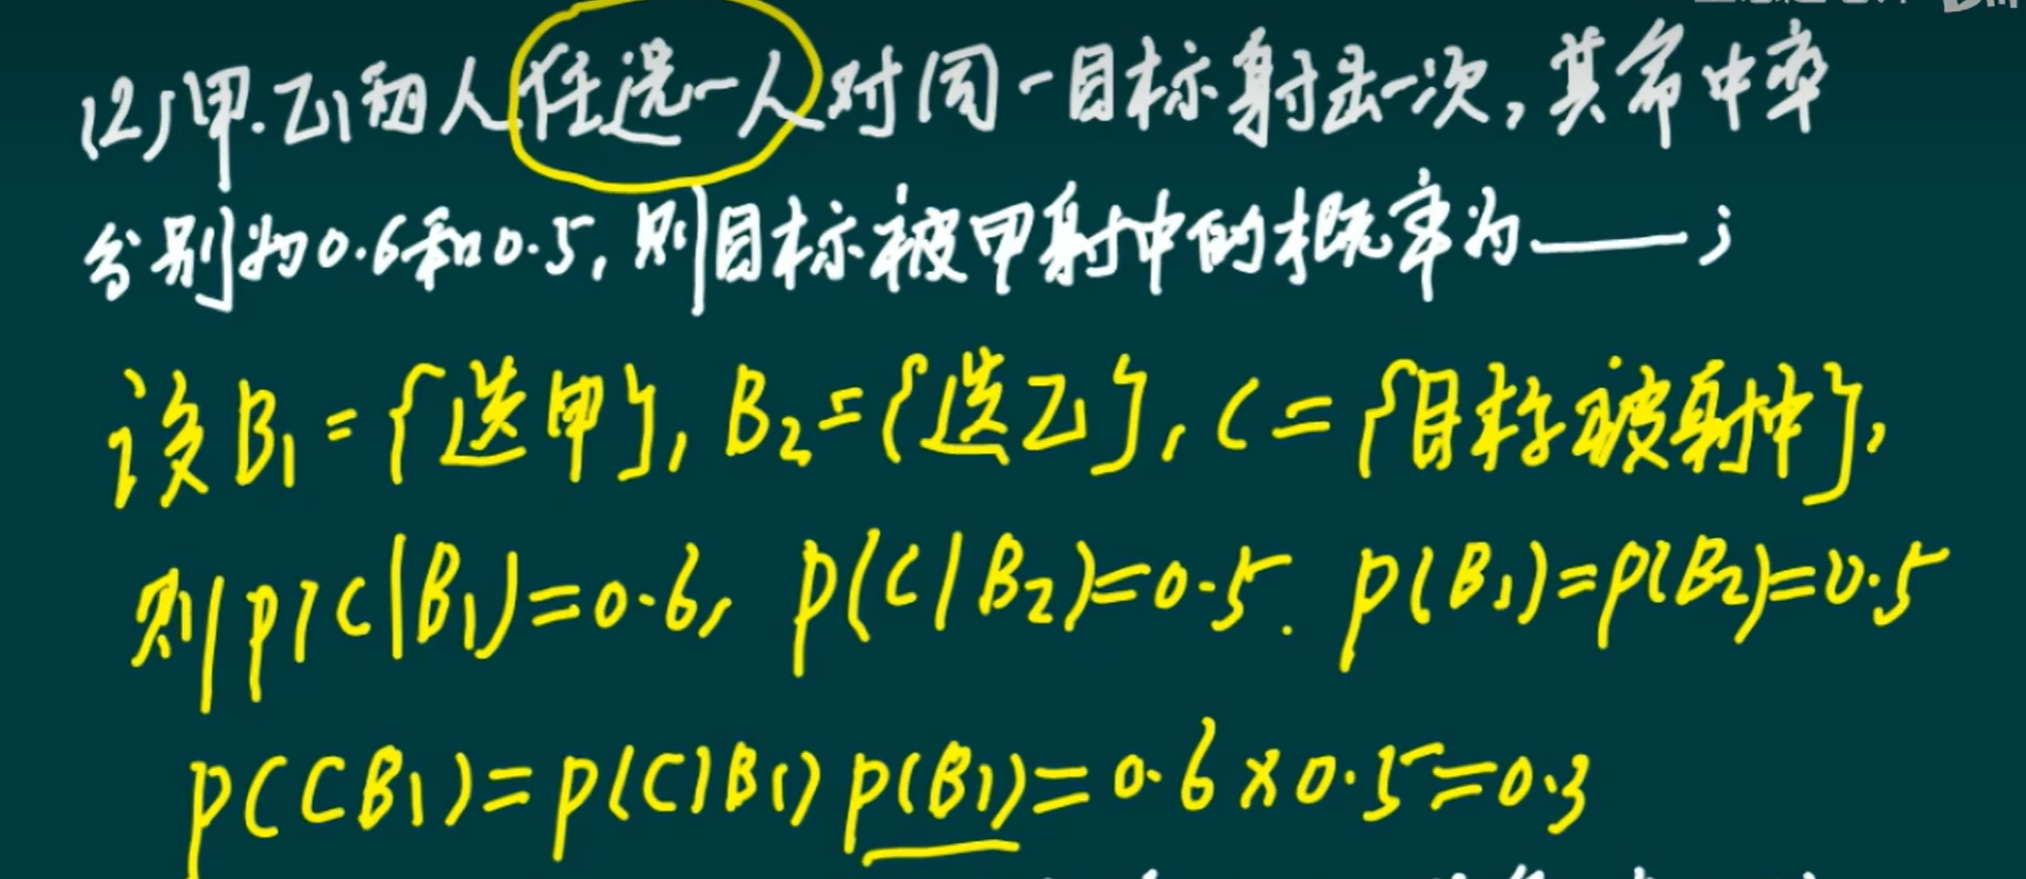 (2)甲.乙两人任选一人对同一目标射击一次,其命中率
分别为0.6和0.5,则目标被甲射中的概率为____;
设B₁={选甲},B₂={选乙},C={目标被射中},
则P(C|B₁)=0.6, P(C|B₂)=0.5. P(B₁)=P(B₂)=0.5
P(CB₁)=P(C|B₁)P(B₁)=0.6×0.5=0.3